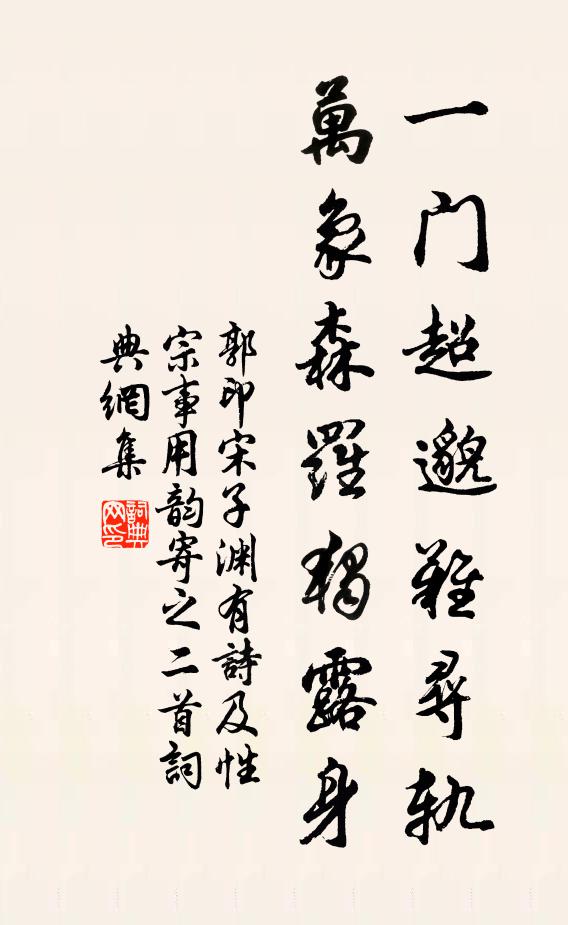 一门超邈難尋軌
萬象森羅獨露身
郭印宋子渊有詩及性
宗事用韵寄之二首詞
典網集
詞典网印